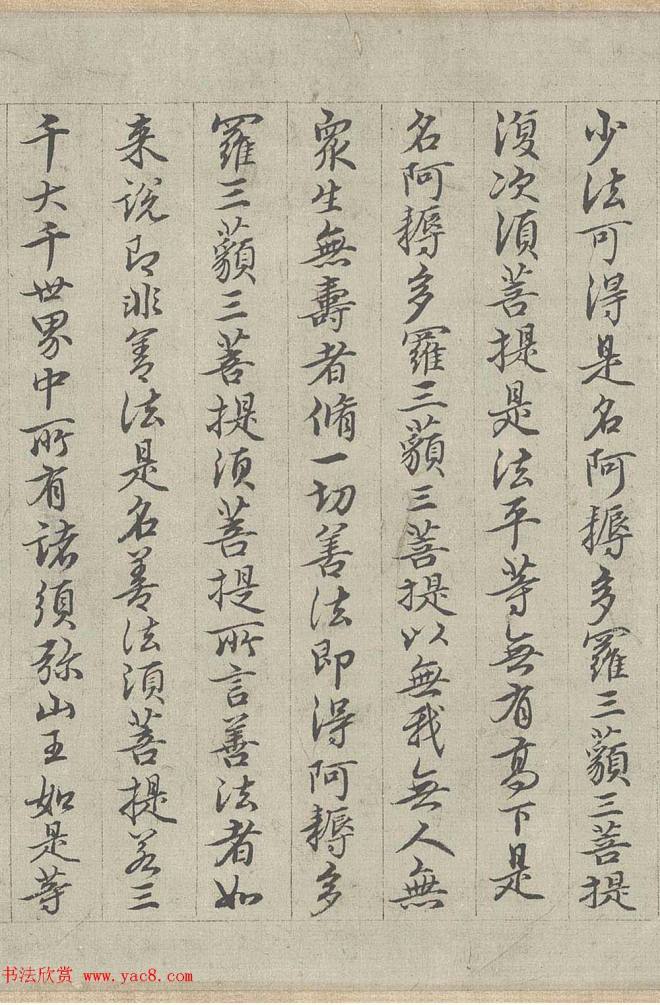 少法可得是名阿耨多羅三藐三菩提
復次須菩提是法平等無有高下是
名阿耨多羅三藐三菩提以無我無人無
眾生無壽者脩一切善法即得阿耨多
羅三藐三菩提須菩提所言善法者如
来說即非善法是名善法須菩提若三
千大千世界中所有諸須弥山王如是等
书法欣赏 www.yac8.com